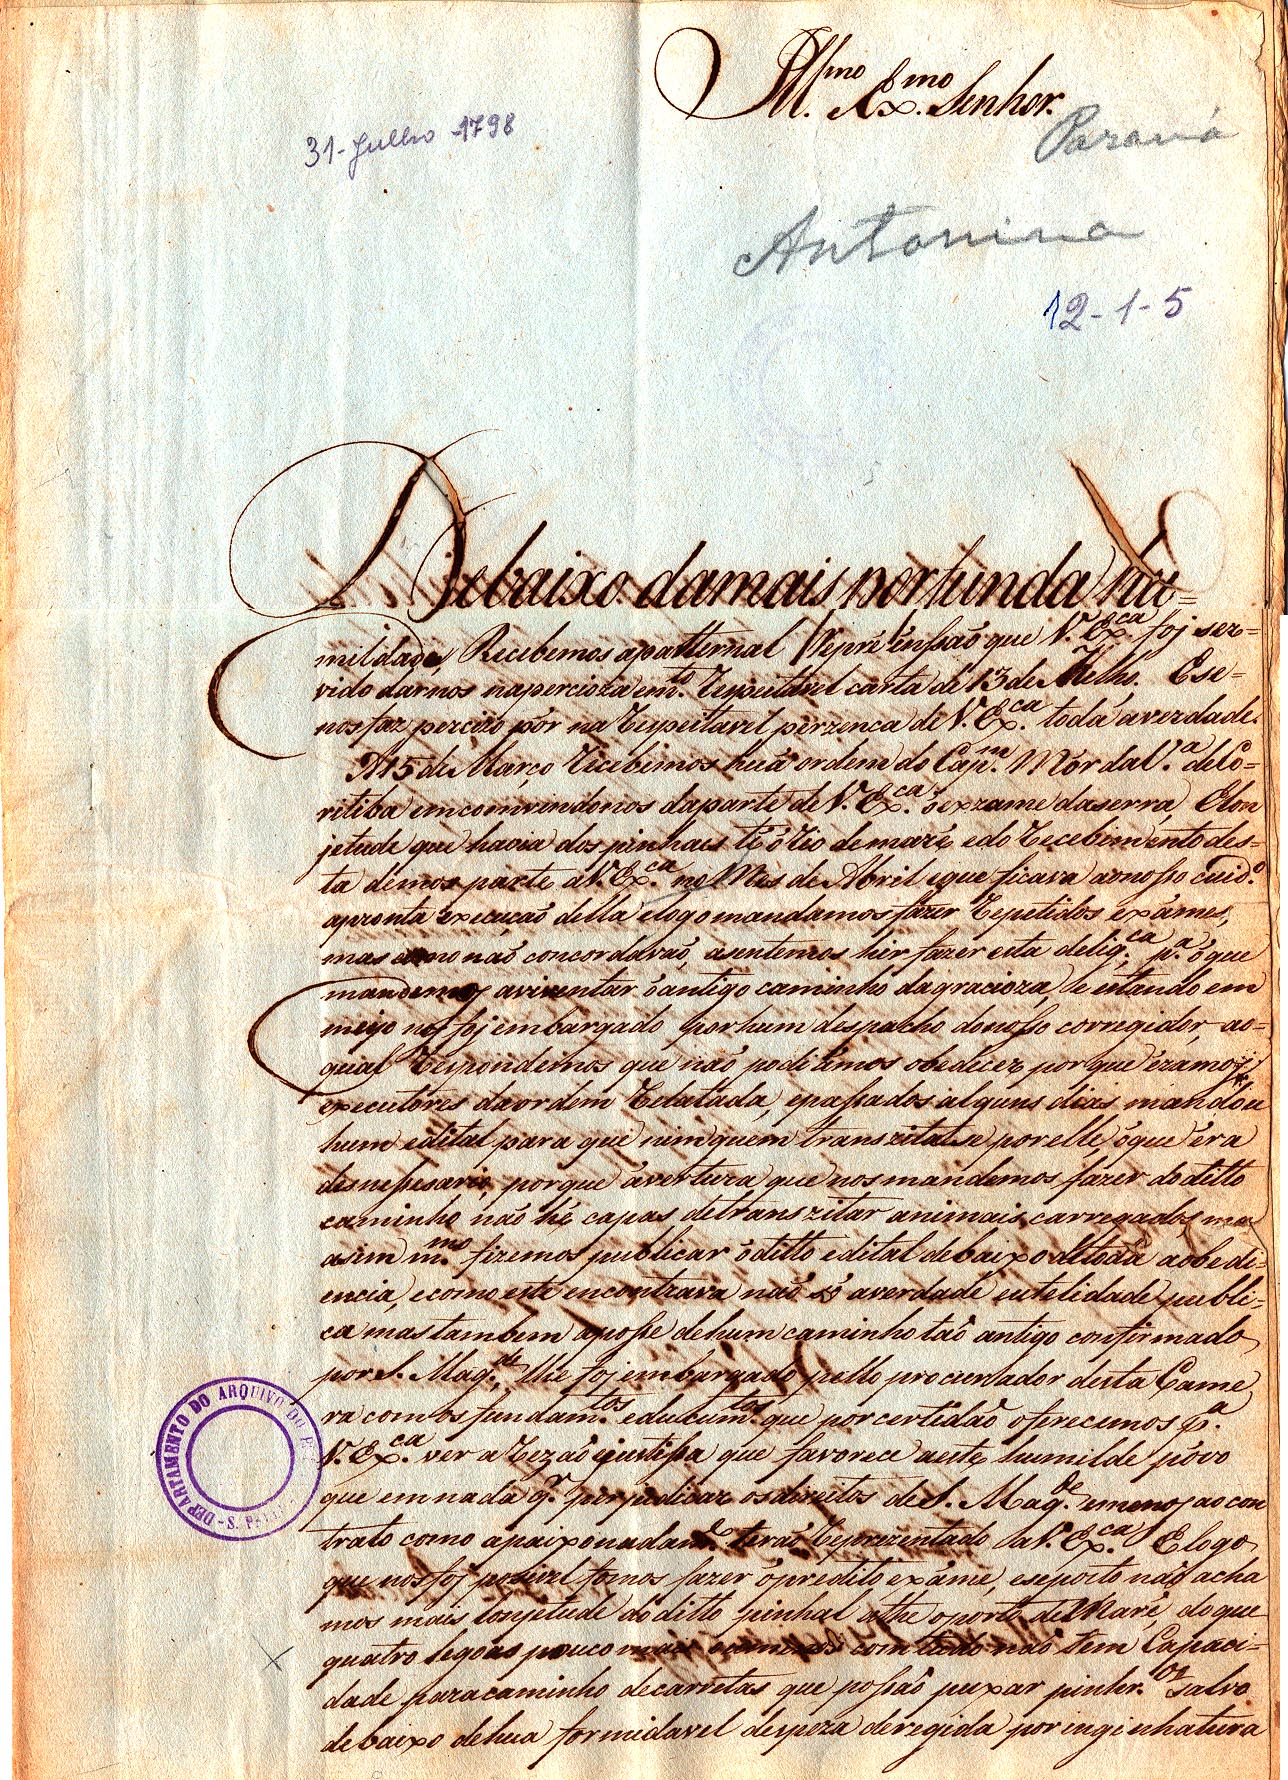 Ill.mo Ex.mo Senhor.
31-Julho-1798
Paraná
Antonina
12-1-5
Debaixo damais porfunda hu=
mildade, Recebemos apatternal Reprienssão que V. Ex.ca foj ser=
vido darnos napercioza em.to respeitavel carta de 13 de Ese=
nos faz percizo pôr na respeitavel perzenca de V. Ex.ca toda averdade.
A 15 de Março recebemos huã ordem do Cap.m Mór da V.a de Co=
ritiba emcomvindonos daparte de V. Ex.ca ó exzame daserra, Elon
jetude que havia dos pinhais té ó rio demaré, edo recebimento des=
ta démos parte a V. Ex.ca no Mes de Abril eque ficava aonosso cuid.o
apronta execução della elogo mandamos fazer repetidos exâmes,
mas como não concordavaõ, asentemos hir fazer esta delig.ca p.a ó que
mandemos aviventar ó antigo caminho dagracioza, e estando em
meiyo nos foj embargado por hum despacho donosso corregidor, ao=
qual respondemos que não podiamos obedecer porque éramos
executores da ordem relatada, epassados alguns dias mandou
hum edital para que nimguem tranzitasse por elle, óque éra
desnessesario, porque ávertura que nos mandemos fazer doditto
caminho não hé capas detranszitar animais carregados mas
asim m.mo fizemos publicar ó ditto edital debaixo detoda aobedi=
encia, ecomo este encontrava não só averdade eutelidade publi=
ca mas tambem apósse dehum caminho tão antigo confirmado
por S. Mag.de, lhe foj embargado pello procurador desta Came
ra com os fundam.tos educum.tos que porcertidão oferecemos p.a
V. Ex.ca ver a rezão ejustissa que favorece aeste humilde povo
que emnada q.r perjudicar os direitos de S. Mag.de emenos ao con
trato como apaixonadam.e terão reprezentado a V. Ex.ca E logo
que nos foj posivel fomos fazer ó predito exâme, eseposto não acha
mos mais lonjetude doditto pinhal athe oporto de Maré, do que
quatro legoas pouco mais oumenos comtudo não tem Capaci=
dade para caminho decarretas que possão puxar pinhr.os salvo
debaixo dehua formidavel despeza deregida poringinhatura
DEPARTAMENTO DO ARQUIVO DO E
S. P